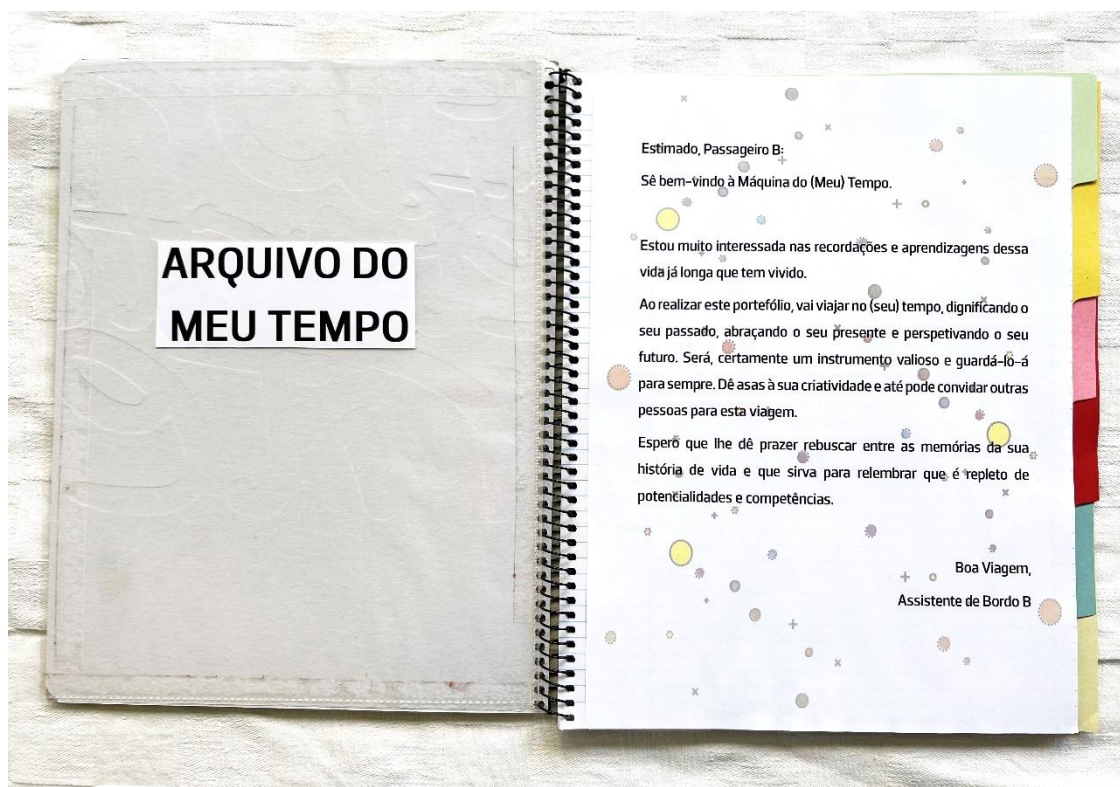 ARQUIVO DO
MEU TEMPO
Estimado, Passageiro B:
Sê bem-vindo à Máquina do (Meu) Tempo.
Estou muito interessada nas recordações e aprendizagens dessa
vida já longa que tem vivido.
Ao realizar este portefólio, vai viajar no (seu) tempo, dignificando o
seu passado, abraçando o seu presente e perspetivando o seu
futuro. Será, certamente um instrumento valioso e guardá-lo-á
para sempre. Dê asas à sua criatividade e até pode convidar outras
pessoas para esta viagem.
Espero que lhe dê prazer rebuscar entre as memórias da sua
história de vida e que sirva para relembrar que é repleto de
potencialidades e competências.
Boa Viagem,
Assistente de Bordo B